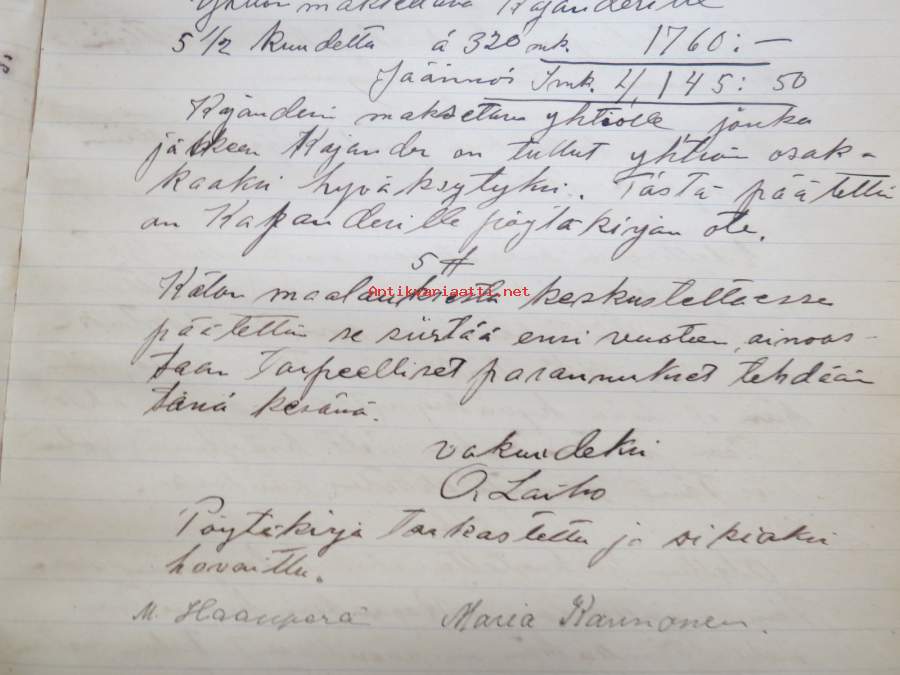 yhtiön maksettava Kajanderille
5 1/2 kuudetta á 320 mk. 1760:—
Jäännös Smk. 4,145:50
Kajanderin maksettava yhtiölle, jonka
jälkeen Kajander on tullut yhtiön osak-
kaaksi hyväksytyksi. Tästä päätettiin
on Kajanderille pöytäkirjan ote.
5 §
Talon maalauksesta keskusteltaessa
päätettiin se siirtää ensi vuoteen, ainoas-
taan Tarpeelliset parannukset tehdään
tänä kesänä.
Antikvariaatti.net
vakuudeksi
O. Laiho
Pöytäkirja Tarkastettu ja oikiaksi
havaittu.
M. Haanperä Maria Kannonen.